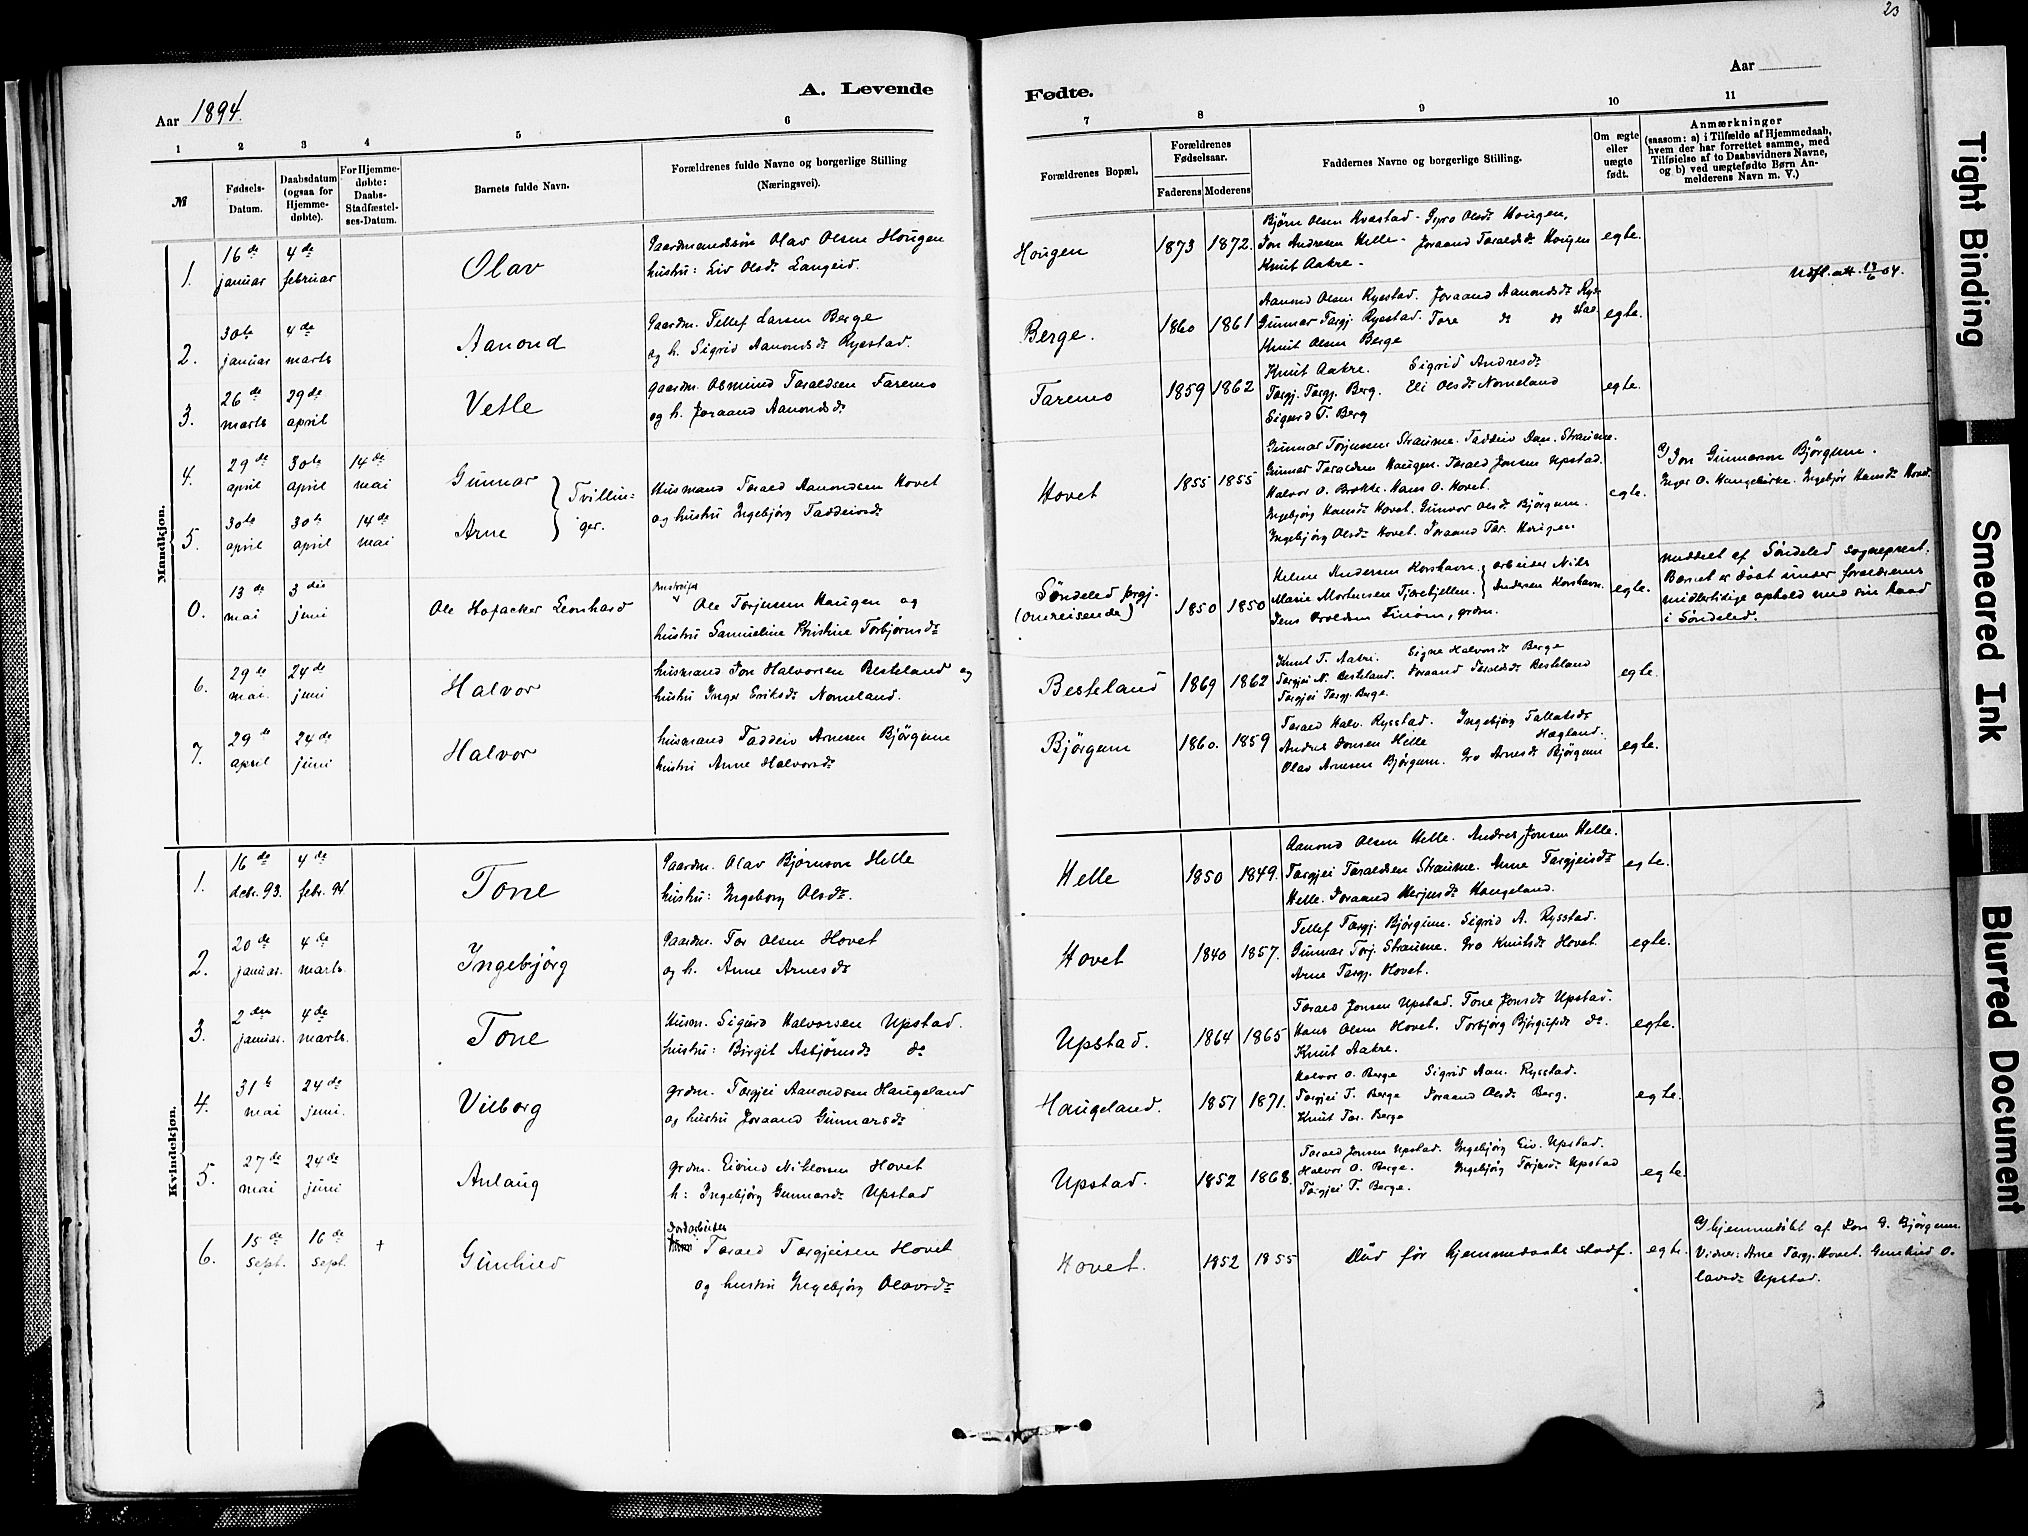 23
A. Levende
Fødte.
Aar 1894.
Aar
1 2 3 4 5 6 7 8 9 10 11
№
Fødsels-Datum.
Daabsdatum (ogsaa for Hjemme-døbte).
For Hjemme-døbte: Daabs-Stadfæstel-ses-Datum.
Barnets fulde Navn.
Forældrenes fulde Navne og borgerlige Stilling (Næringsvei).
Forældrenes Bopæl.
Forældrenes Fødselsaar.
Faderens Moderens
Faddernes Navne og borgerlige Stilling.
Om ægte eller uægte født.
Anmærkninger
(saasom: a) i Tilfælde af Hjemmedaab, hvem der har forrettet samme, med Tilføielse af to Daabsvidners Navne, og b) ved uægtefødte Børn Anmelderens Navn m. V.)
Mandkjøn.
1. 16de januar 4de februar Olav
Gaardmandssøn Olav Olsen Hougen
hustru: Liv Olsdr Langeid.
Hougen 1873 1872.
Bjørn Olsen Kvastad - Gyro Olsdr Hougen,
Jon Andresen Helle - Joraand Taraldsdr Hougen
Knut Aakre.
egte.
Udfl. att. 19/6 04.
2. 30te januar 4de marts Aanond
Gaardm. Tellef Larsen Berge
og h. Sigrid Aanondsdr Rysstad.
Berge. 1860 1861
Aanond Olsen Rysstad. Joraand Aanondsdr Rysstad
Gunnar Targj. Rysstad. Tore do do
Knut Olsen Berge
egte.
3. 26de marts 29de april Vetle
gaardm. Osmund Taraldsen Faremo
og h. Joraand Aanondsdr
Faremo 1859 1862
Knut Aakre. Sigrid Andresdr
Targj. Targj. Berg. Eli Olsdr Nomeland
Sigurd T. Berg
egte.
4. 29de april 30te april 14de mai Gunnar
5. 30te april 30te april 14de mai Arne
Tvillinger.
Husmand Tarald Aanondsen Hovet
og hustru Ingebjörg Taddeivsdr
Hovet 1855 1855
Gunnar Torjussen Straume. Taddeiv Dan. Straume.
Gunnar Taraldsen Haugen. Tarald Jonsen Upstad.
Halvor O. Brokke. Hans O. Hovet.
Ingebjörg Hansdr Hovet. Gunvor Olsdr Bjørgum.
Ingebjörg Olsdr Hovet. Joraand Tar. Hougen.
egte.
a) Jon Gunnarson Björgum.
Inger O. Haugebirke. Ingebjør Hansdr Hovet.
0. 13de mai 3die juni Ole Hofacker Leonhard
Ole Torjussen Haugen og
hustru Samueline Kristine Torbjørnsdr
Søndeled prgj. (Omreisende) 1850 1850
Helene Andersen Korshavn
Marie Mortensen Fjærefjellen arbeider Nils Andersen Korshavn.
Jens Oroldsen Finøm, grdm.
egte.
meddelt af Søndeled sogneprest.
Barnet er døbt under forældrenes
midlertidige ophold med sin baad
i Søndeled.
6. 29de mai 24de juni Halvor
husmand Jon Halvorsen Besteland og
hustru Inger Eriksdr Nomeland.
Besteland 1869 1862
Knut T. Aakre. Signe Halvorsdr Berge
Targjei N. Besteland. Joraand Taraldsdr Besteland
Targjei Targj. Berge.
egte.
7. 29de april 24de juni Halvor
husmand Taddeiv Arnesen Bjørgum
hustru Anne Halvorsdr
Björgum 1860. 1859
Tarald Halv. Rysstad. Ingebjörg Tallaksdr Hagland.
Andres Jonsen Helle
Olav Arnesen Björgum. Gro Arnesdr Björgum
egte.
Kvindekjøn.
1. 16de debr. 93. 4de febr. 94 Tone
Gaardm. Olav Bjørnson Helle
hustru: Ingeborg Olsdr.
Helle 1850 1849.
Aanond Olsen Helle. Andres Jonsen Helle.
Targjei Taraldsen Straume. Anne Targjeisdr
Helle. Joraand Herjusdr Haugeland.
egte.
2. 20de januar. 4de marts. Ingebjörg
Gaardm. Tor Olsen Hovet
og h. Anne Arnesdr
Hovet 1840 1857.
Tellef Targj. Bjørgum. Sigrid A. Rysstad.
Gunnar Torj. Straume. Gro Knutsdr Hovet.
Arne Targj. Hovet.
egte.
3. 2den januar. 4de marts. Tone
Husm. Sigurd Halvorsen Upstad.
hustru: Birgit Asbjørnsdr do
Upstad. 1864 1865
Tarald Jonsen Upstad. Tone Jonsdr Upstad.
Hans Olsen Hovet. Torbjørg Bjørgulfsdr do.
Knut Aakre.
egte.
4. 31te mai 24de juni. Vilborg
grdm. Targjei Aanondsen Haugeland
og hustru Joraand Gunnarsdr
Haugeland. 1851 1871.
Halvor O. Berge Sigrid Aan. Rysstad.
Targjei T. Berge Joraand Olsdr Berg.
Knut Tar. Berge
egte.
5. 27de mai 24de juni Anlaug
grdm. Eivind Niklossen Hovet
h: Ingebjörg Gunnarsdr Upstad
Upstad. 1852 1868.
Tarald Jonsen Upstad. Ingebjörg Eiv. Upstad.
Halvor O. Berge. Ingebjörg Torjusdr Upstad
Targjei T. Berge.
egte.
6. 15de sept. 16de sept. + Gunhild
Jordarbeider
Tarald Targjeisen Hovet
og hustru Ingebjörg Olavsdr
Hovet. 1852 1855
Død før hjemmedaabs stadf.
egte.
a) hjemmedøbt af Jon G. Bjørgum.
Vidner: Arne Targj. Hovet. Gunhild O-
lavsdr Upstad.
Tight Binding
Smeared Ink
Blurred Document